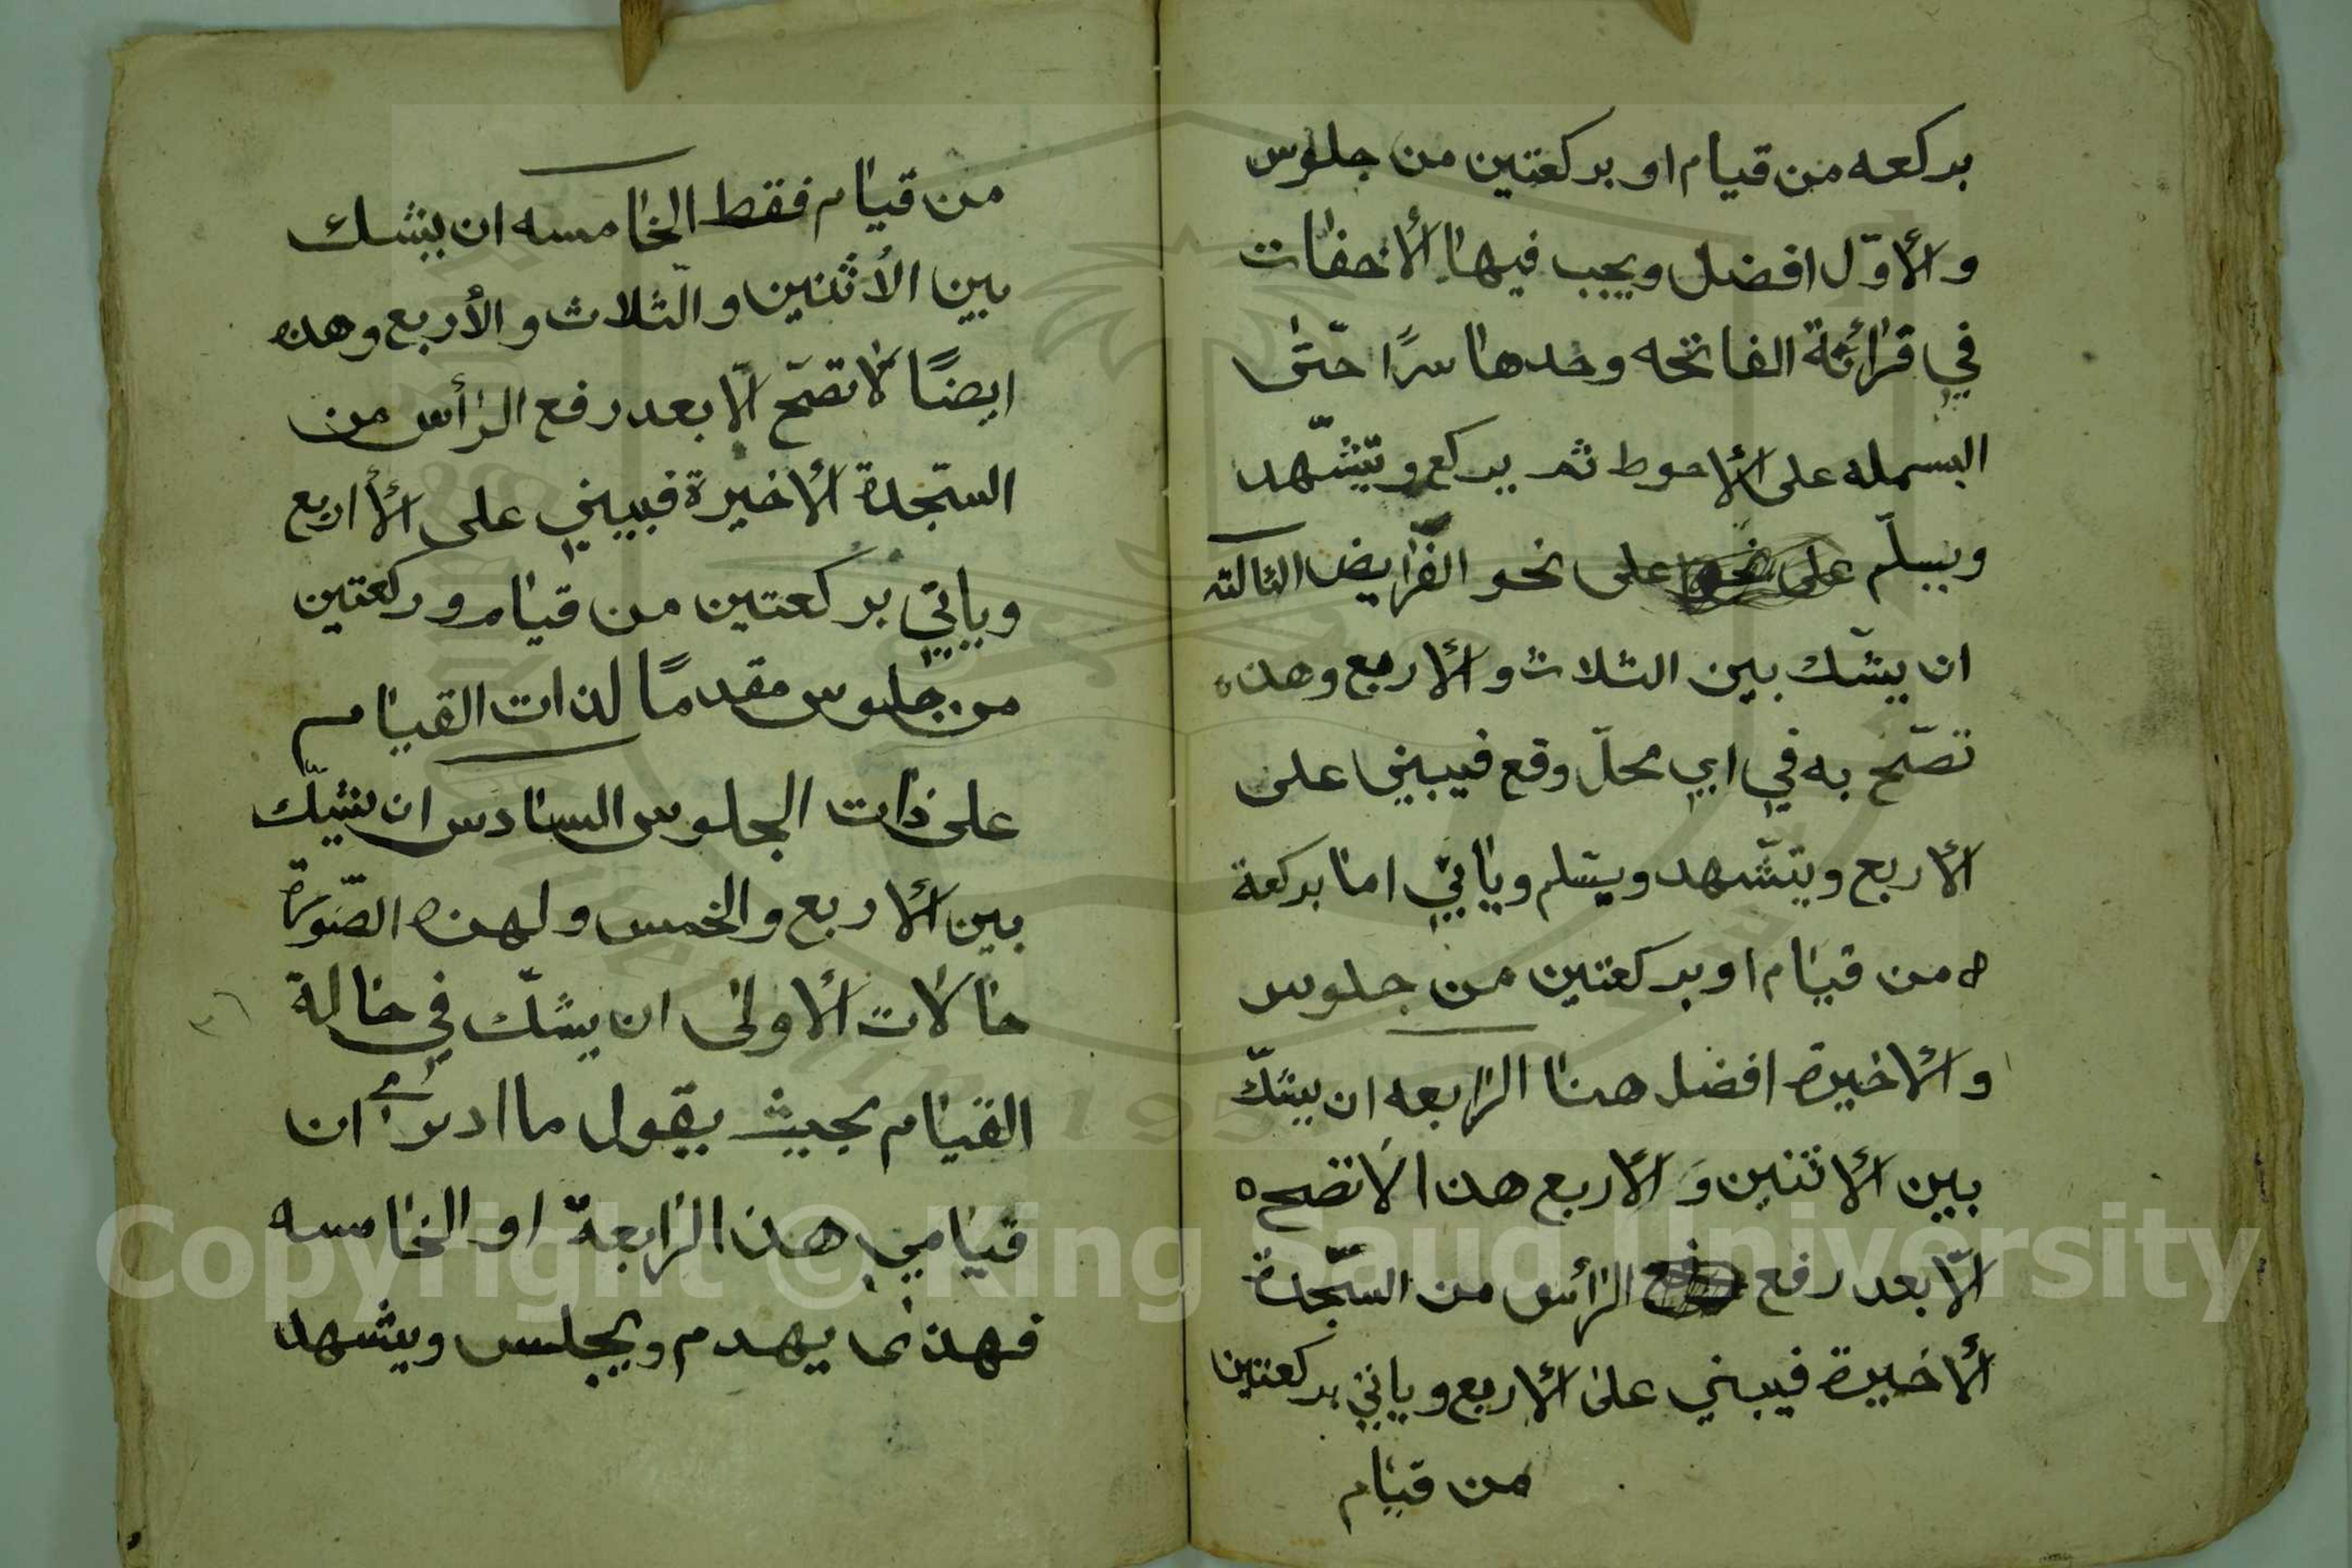 بركعه من قيام او بركعتين من جلوس
والأوّل افضل ويجب فيها الأخفات
في قرائة الفاتحه وحدها سرًا حتّى
البسمله على الأحوط ثم يركع ويتشّهد
ويسلّم على نحو على نحو الفرايض الثالثه
ان يشّك بين الثلاث والأربع وهذه
تصّح به في اي محلّ وقع فيبني على
الأربع ويتشّهد ويسّلم وياتي امّا بركعة
ه من قيام او بركعتين من جلوس
والأخيرة افضل هنا الرابعه ان يشّك
بين الأثنين وَالأربع هذا لَا تصح ه
الّا بعد رفع رفع الرأس من السّجدة
الأخيرة فيبني على الأربع وياتي بركعتين
من قيام
من قيام فقط الخامسه ان يشك
بين الأثنين والّثلاث والأربع وهذه
ايضًا لا تصّح الّا بعد رفع الرأس من
السّجدة الأخيرة فيبني على الأاربع
وياتي بركعتين من قيام وركعتين
من جلوس مقدمًا لذات القيام
على ذات الجلوس السادس ان يشّك
بين الأربع والخمس ولهذه الصّورة
حالات الأولى ان يشّك في حالة
القيام بحيث يقول ما ادري ان
قيامي هذا الرابعة او الخامسه
فهذا يهدم ويجلس ويشهد
Copyright © King Saud University